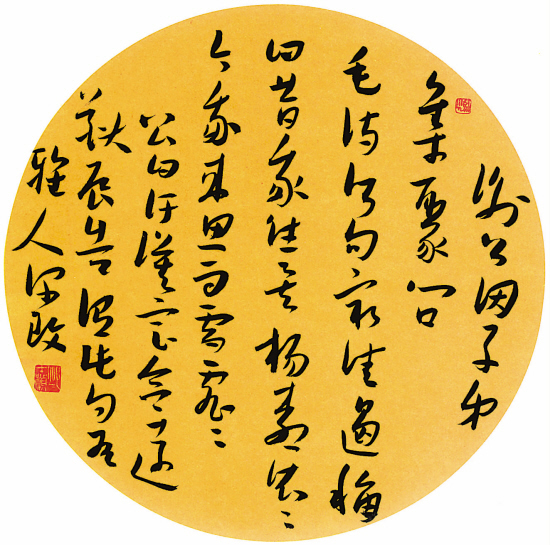 謝公因子弟
集聚問
毛詩何句最佳遏稱
曰昔我往矣楊柳依〻
今我來思雨雪霏〻
公曰訏謨定命遠
猷辰告謂此句有
雅人深致